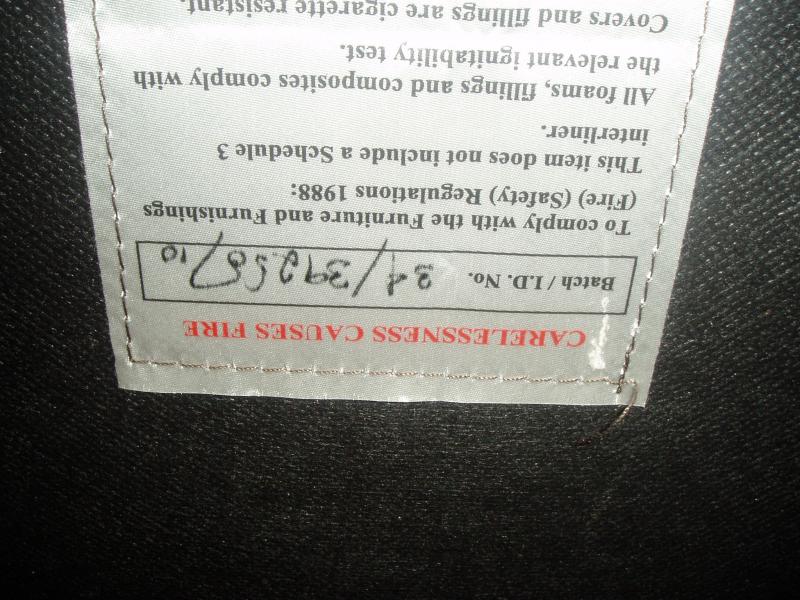 CARELESSNESS CAUSES FIRE
Batch / I.D. No.
To comply with the Furniture and Furnishings
(Fire) (Safety) Regulations 1988:
This item does not include a Schedule 3
interliner.
All foams, fillings and composites comply with
the relevant ignitability test.
Covers and fillings are cigarette resistant.